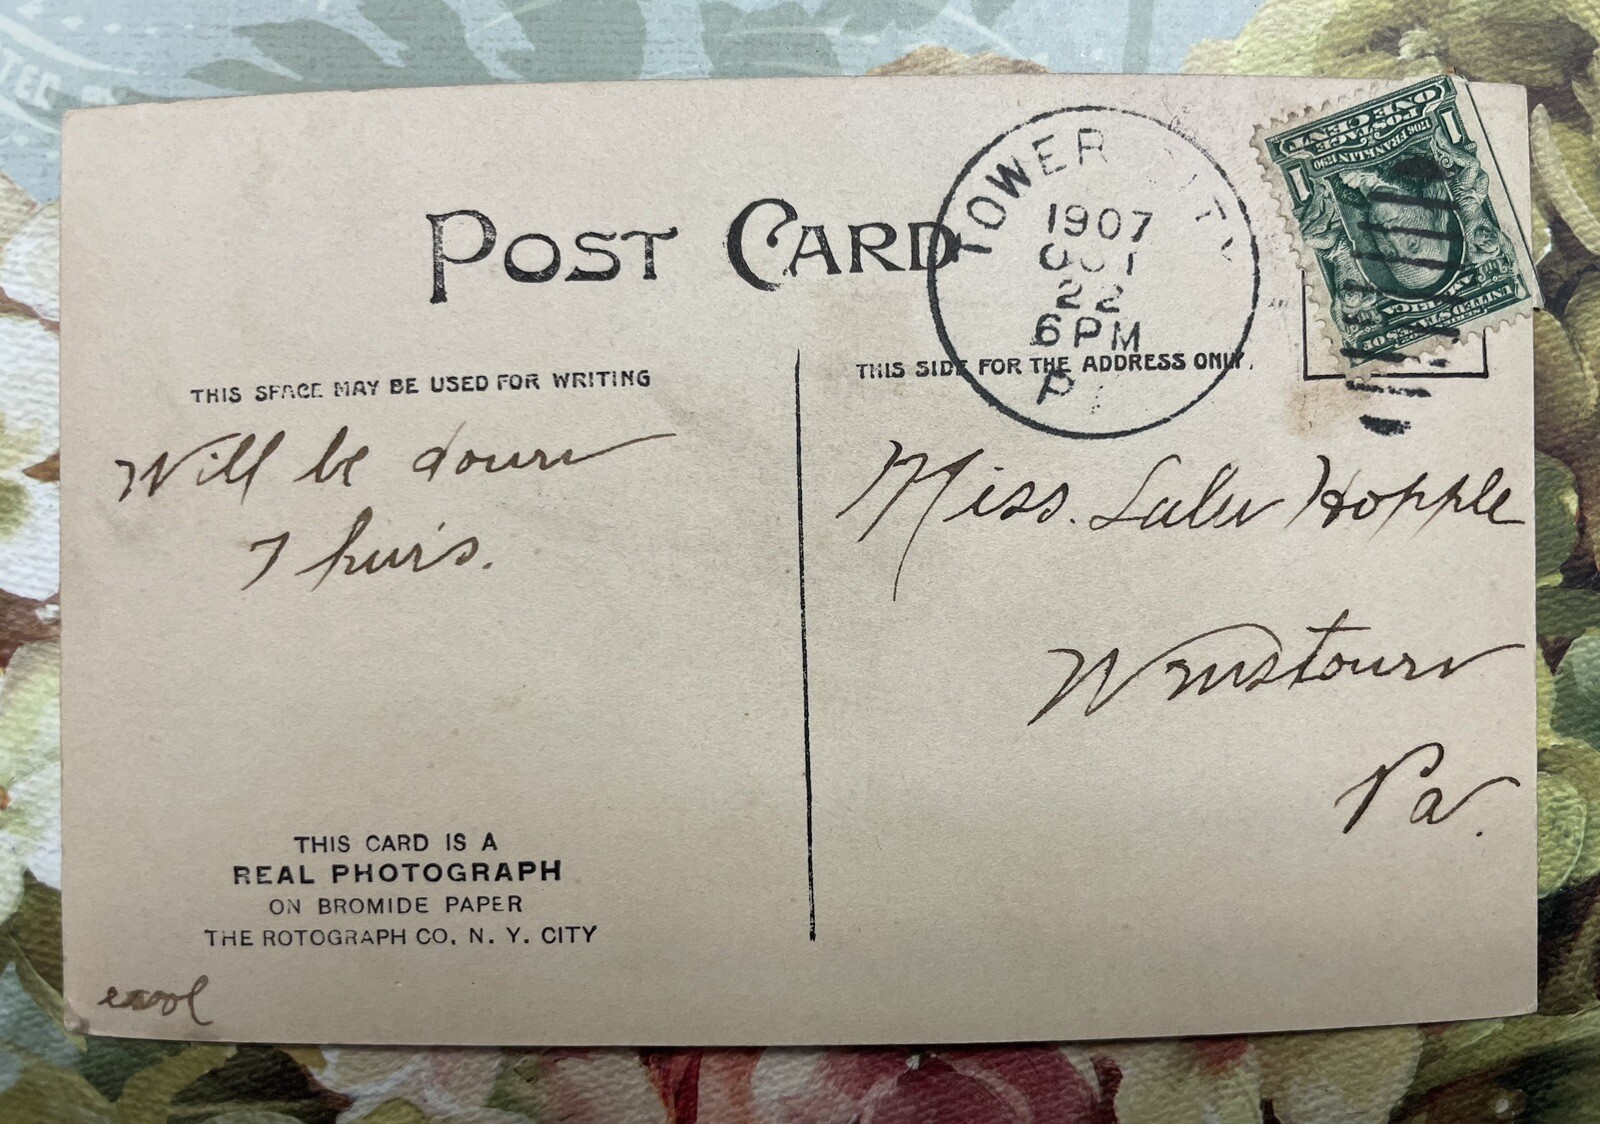 POST CARD
TOWER CITY
1907
OCT
22
6 PM
THIS SPACE MAY BE USED FOR WRITING
THIS SIDE FOR THE ADDRESS ONLY.
POSTAGE
ONE CENT
1706 FRANKLIN 1790
1 1
UNITED STATES OF
AMERICA
Will be down
Thur's.
Miss. Lulu Hopple
Pa.
THIS CARD IS A
REAL PHOTOGRAPH
ON BROMIDE PAPER
THE ROTOGRAPH CO. N. Y. CITY